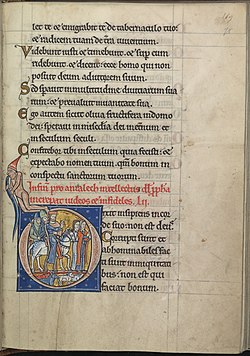 let te et emigrabit te de tabernaculo tuo:
et radicem tuam de t̄ra uiuentium.
Videbunt iusti et timebunt: et sup eum
ridebunt et dicent: ecce homo qui non
posuit deum adiutorem suum.
Sed sperauit in multitudine diuitiarum sua
rum: et preualuit in uanitate sua.
Ego autem sicut oliua fructifera in domo
dei: speraui in misericordia dei in eternum et
in seculum seculi.
Confitebor tibi in seculum quia fecisti: et
expectabo nomen tuum qm̄ bonum in
conspectu sanctorum tuorum.
In finem pro intellectus
increpat iudeos et infideles. Lii.
Dixit insipiens in cor
de suo: non est deus.
Corrupti sunt et
abhominabiles fac
ti sunt in iniquitati
bus: non est qui
faciat bonum.